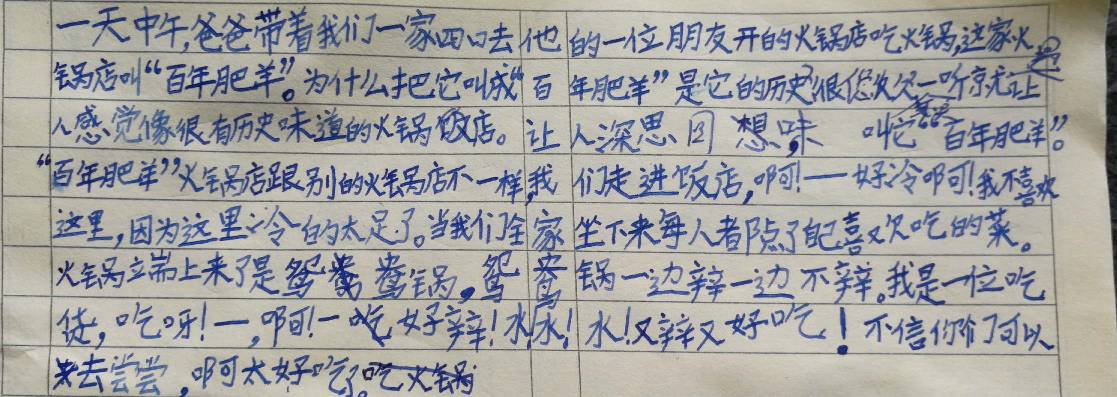 一天中午,爸爸带着我们一家四口去他的一位朋友开的火锅店吃火锅,这家火
锅店叫“百年肥羊”。为什么把它叫成“百年肥羊”是它的历史很悠久一听就让
人感觉像很有历史味道的火锅饭店。让人深思回想,味叫它“百年肥羊”。
“百年肥羊”火锅店跟别的火锅店不一样,我们走进饭店,啊!一好冷啊!我不喜欢
这里,因为这里冷的太足了。当我们全家坐下来每人都点了自己喜欢吃的菜。
火锅端上来了是鸳鸯锅,鸳鸯锅一边辣一边不辣。我是一位吃
货,吃呀!一,啊!一吃好辣!水!水!水!又辣又好吃!不信你们可以
去尝尝,啊太好吃了吃火锅